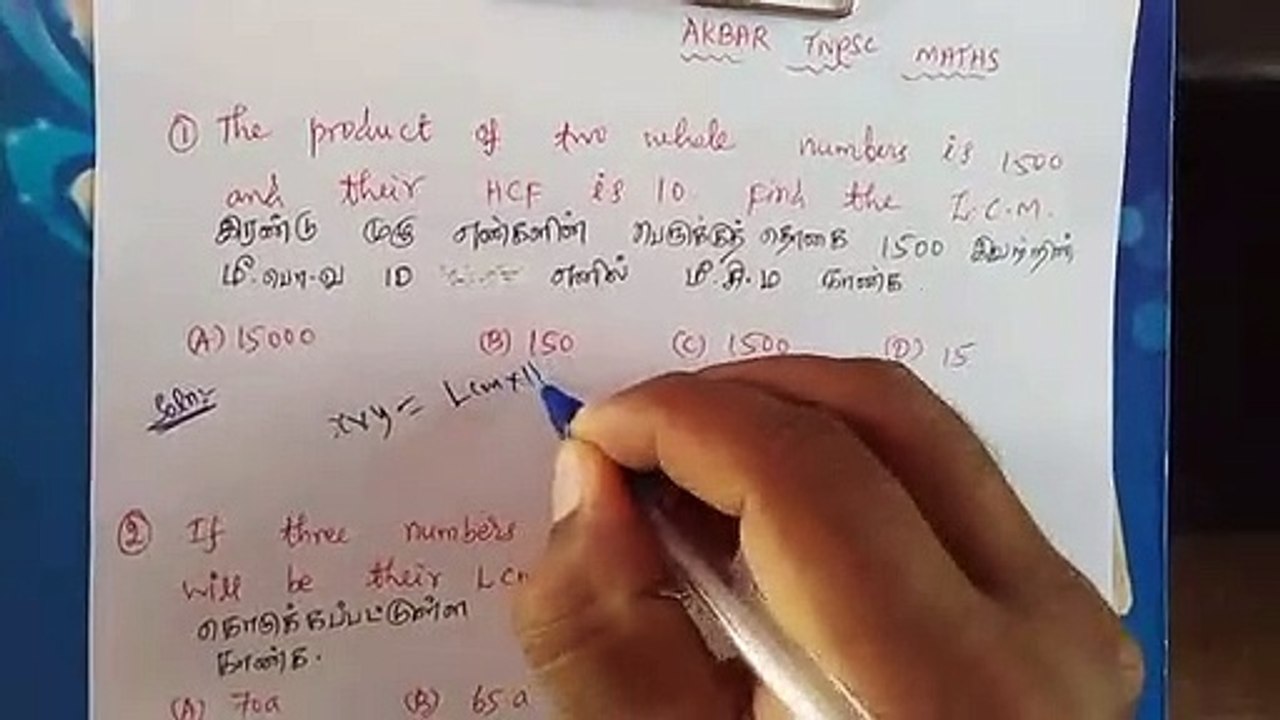 AKBAR TNPSC MATHS
① The product of two whole numbers is 1500
and their HCF is 10 Find the L.C.M.
இரண்டு முழு எண்களின் பெருக்குத் தொகை 1500 இவற்றின்
மீ.பொ.வ 10 எனில் மீ.சி.ம காண்க
(A) 15000 (B) 150 (C) 1500 (D) 15
Soln:
x×y = Lcm×
② If three numbers
will be their LCm
கொடுக்கப்பட்டுள்ள
காண்க.
(A) 70a (B) 65a